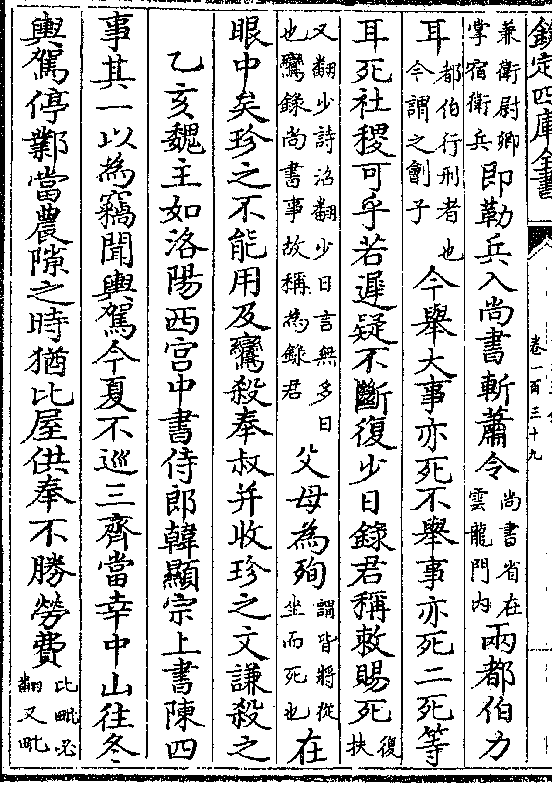 欽定四庫全書
卷一百三十九
兼衛尉卿掌宿衛兵即勒兵入尚書斬蕭令尚書省在雲龍門内兩都伯力
耳都伯行刑者也今謂之劊子今舉大事亦死不舉事亦死二死等
耳死社稷可乎若遲疑不斷復少日錄君稱敕賜死復扶
又翻少詩沼翻少日言無多日也鸞錄尚書事故稱為錄君父母為殉謂皆將從坐而死也在
眼中矣珍之不能用及鸞殺奉叔并收珍之文謙殺之
乙亥魏主如洛陽西宮中書侍郎韓顯宗上書陳四
事其一以為竊聞輿駕今夏不巡三齊當幸中山往冬
輿駕停鄴當農隙之時猶比屋供奉不勝勞費比毗必翻又毗